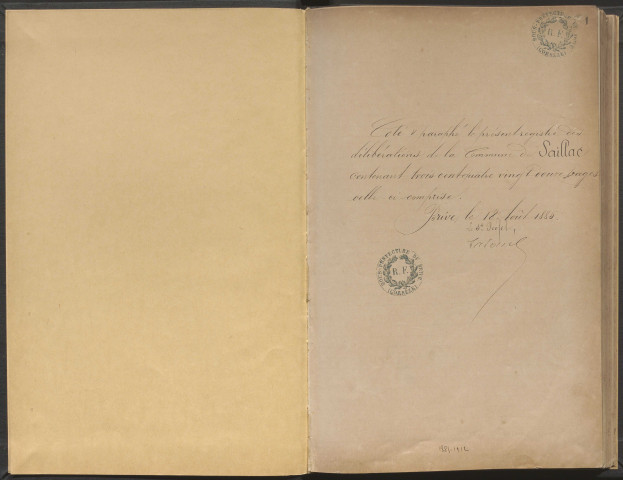 1
SOUS-PRÉFECTURE DE BRIVE
R.F.
(CORRÈZE)
Coté & paraphé le présent registre des
délibérations de la Commune de Saillac
contenant trois cent quatre vingt onze pages
celle-ci comprise.
Brive, le 12 Août 1884.
Le S. Préfet,
SOUS-PRÉFECTURE DE BRIVE
R.F.
(CORRÈZE)